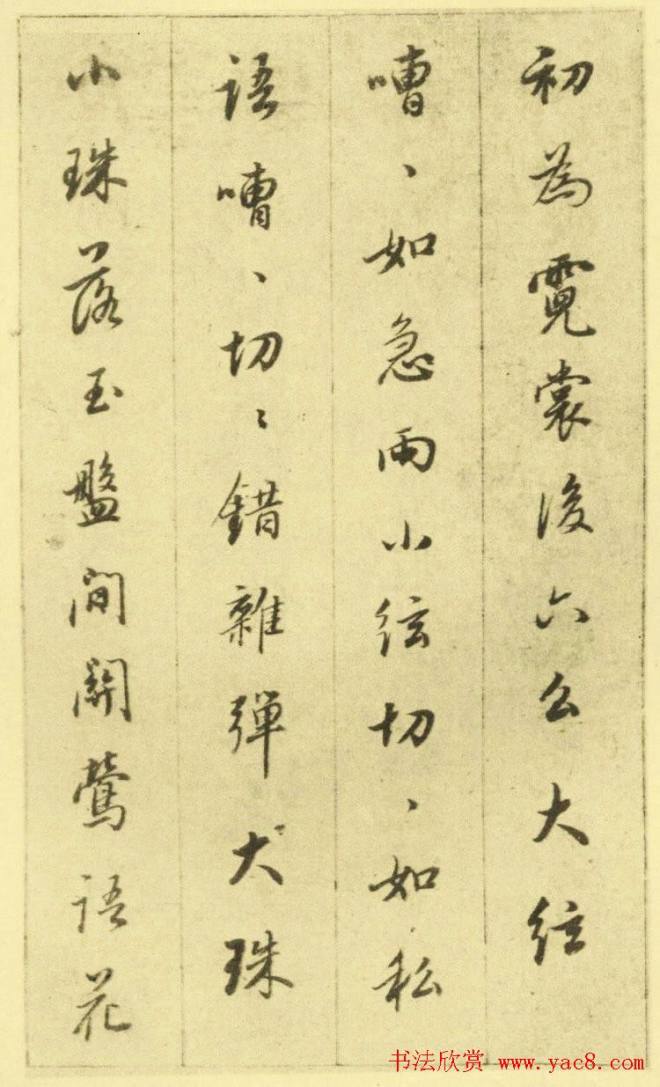 初為霓裳後六么大絃
嘈、如急雨小絃切、如私
語嘈、切〻錯雜彈大珠
小珠落玉盤間關鶯語花
书法欣赏 www.yac8.com